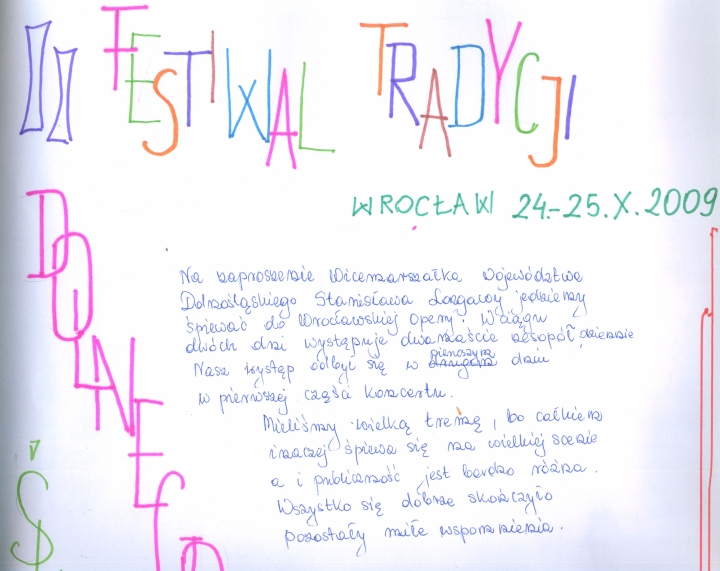 II FESTIWAL TRADYCJI
WROCŁAW 24-25.X.2009
DOLNEGO
Ś
Na zaproszenie Wicemarszałka Województwa
Dolnośląskiego Stanisława Longawy jedziemy
śpiewać do Wrocławskiej Opery. W ciągu
dwóch dni występuje dwanaście zespół dziennie
Nasz występ odbył się w pierwszym dniu
w pierwszej części koncertu.
Mieliśmy wielką tremę, bo całkiem
inaczej śpiewa się na wielkiej scenie
a i publiczność jest bardzo różna.
Wszystko się dobrze skończyło
pozostały miłe wspomnienia.